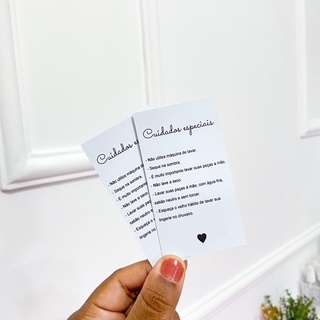 Cuidados especiais
- Não utiliza máquina de lavar.
- Seque na sombra.
- É muito importante lavar suas peças a mão.
- Não lave a seco.
- Lavar suas peças à mão, com água fria,
sabão neutro e sem torcer.
- Esqueça o velho hábito de lavar sua
lingerie no chuveiro.
Cuidados
- Não utiliza máquina
- Seque na sombra.
- É muito importante
- Não lave a seco.
- Lavar suas peças
sabão neutro e
- Esqueça o
lingerie no